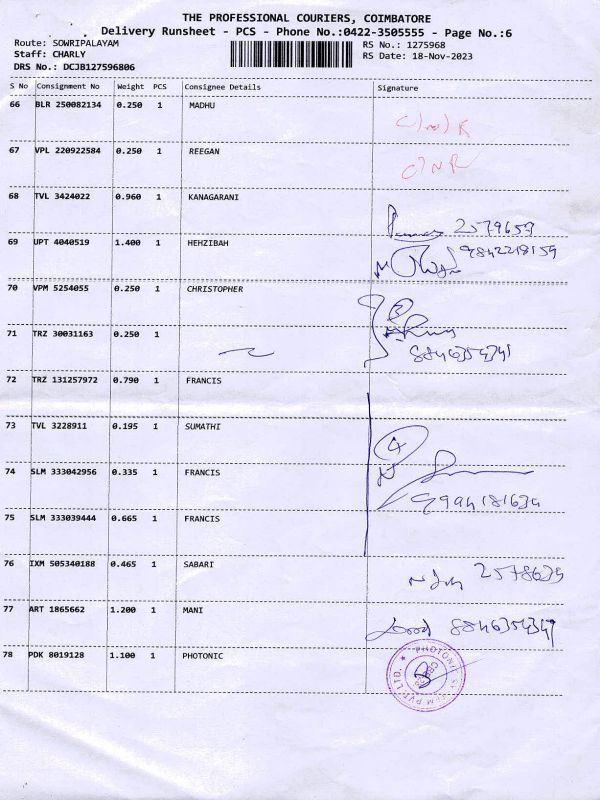 THE PROFESSIONAL COURIERS, COIMBATORE
Delivery Runsheet - PCS - Phone No.:0422-3505555 - Page No.:6
Route: SOWRIPALAYAM RS No.: 1275968
Staff: CHARLY RS Date: 18-Nov-2023
DRS No.: DCJB127596806
S No Consignment No Weight PCS Consignee Details Signature
66 BLR 250082134 0.250 1 MADHU
67 VPL 220922584 0.250 1 REEGAN
68 TVL 3424022 0.960 1 KANAGARANI
2579657
69 UPT 4040519 1.400 1 HEHZIBAH 9842218159
70 VPM 5254055 0.250 1 CHRISTOPHER
71 TRZ 30031163 0.250 1
8846354341
72 TRZ 131257972 0.790 1 FRANCIS
73 TVL 3228911 0.195 1 SUMATHI
4
74 SLM 333042956 0.335 1 FRANCIS
75 SLM 333039444 0.665 1 FRANCIS
76 IXM 505340188 0.465 1 SABARI
77 ART 1865662 1.200 1 MANI
78 PDK 8019128 1.100 1 PHOTONIC